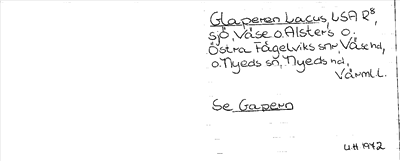 Glaperen Lacus, LSA R8,
sjö, Väse o. Alsters o.
Östra Fågelviks snr, Väse hd,
o. Nyeds sn, Nyeds hd,
Värml.
Se Gapern
U.H 1942